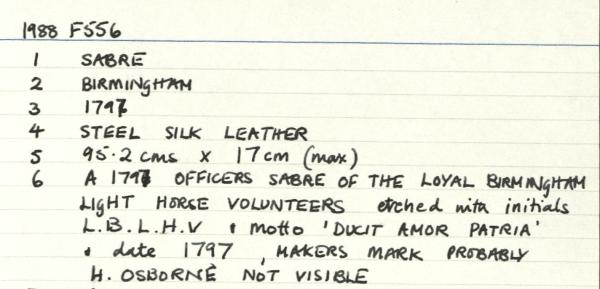 1988 F556
1 SABRE
2 BIRMINGHAM
3 1797
4 STEEL SILK LEATHER
5 95.2 cms x 17cm (max)
6 A 1797 OFFICERS SABRE OF THE LOYAL BIRMINGHAM
LIGHT HORSE VOLUNTEERS etched with initials
L.B.L.H.V & motto 'DUCIT AMOR PATRIA'
& date 1797, MAKERS MARK PROBABLY
H. OSBORNE NOT VISIBLE